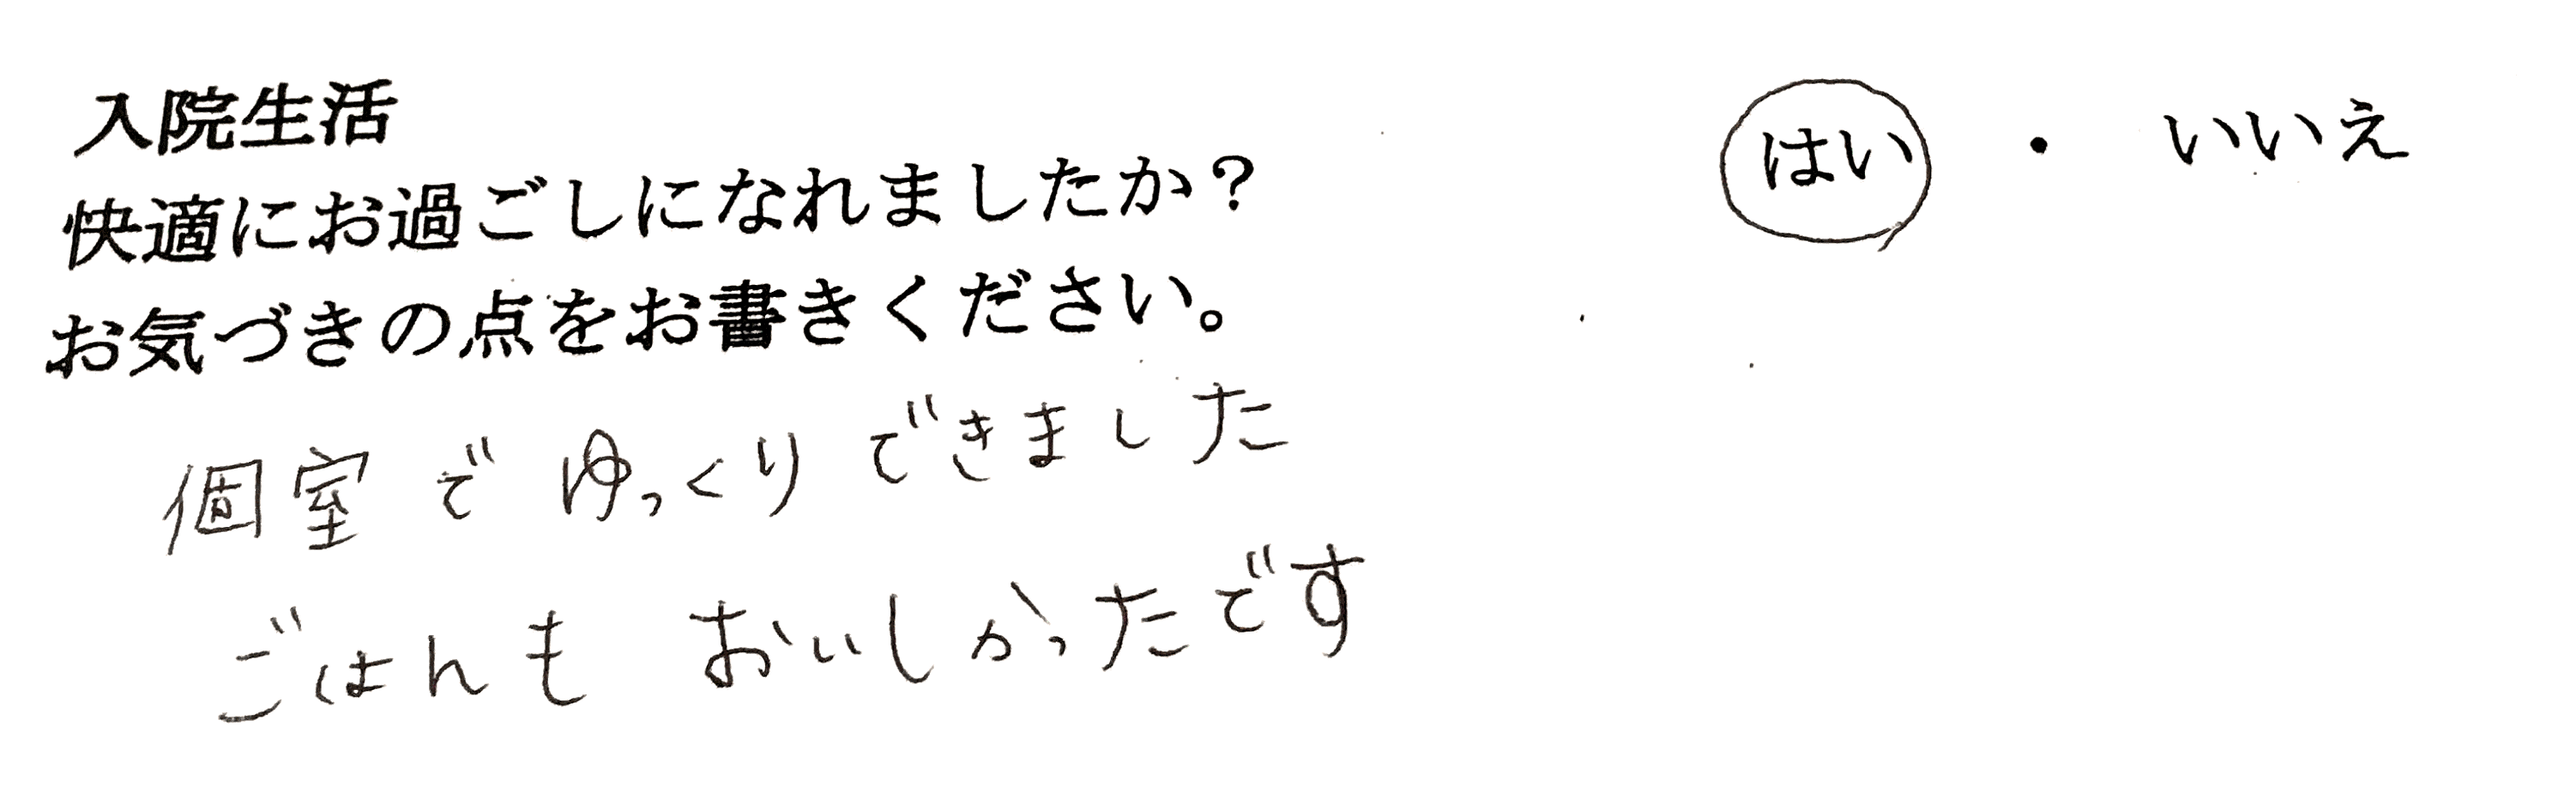 入院生活
快適にお過ごしになれましたか？ はい ・ いいえ
お気づきの点をお書きください。
個室でゆっくりできました
ごはんもおいしかったです